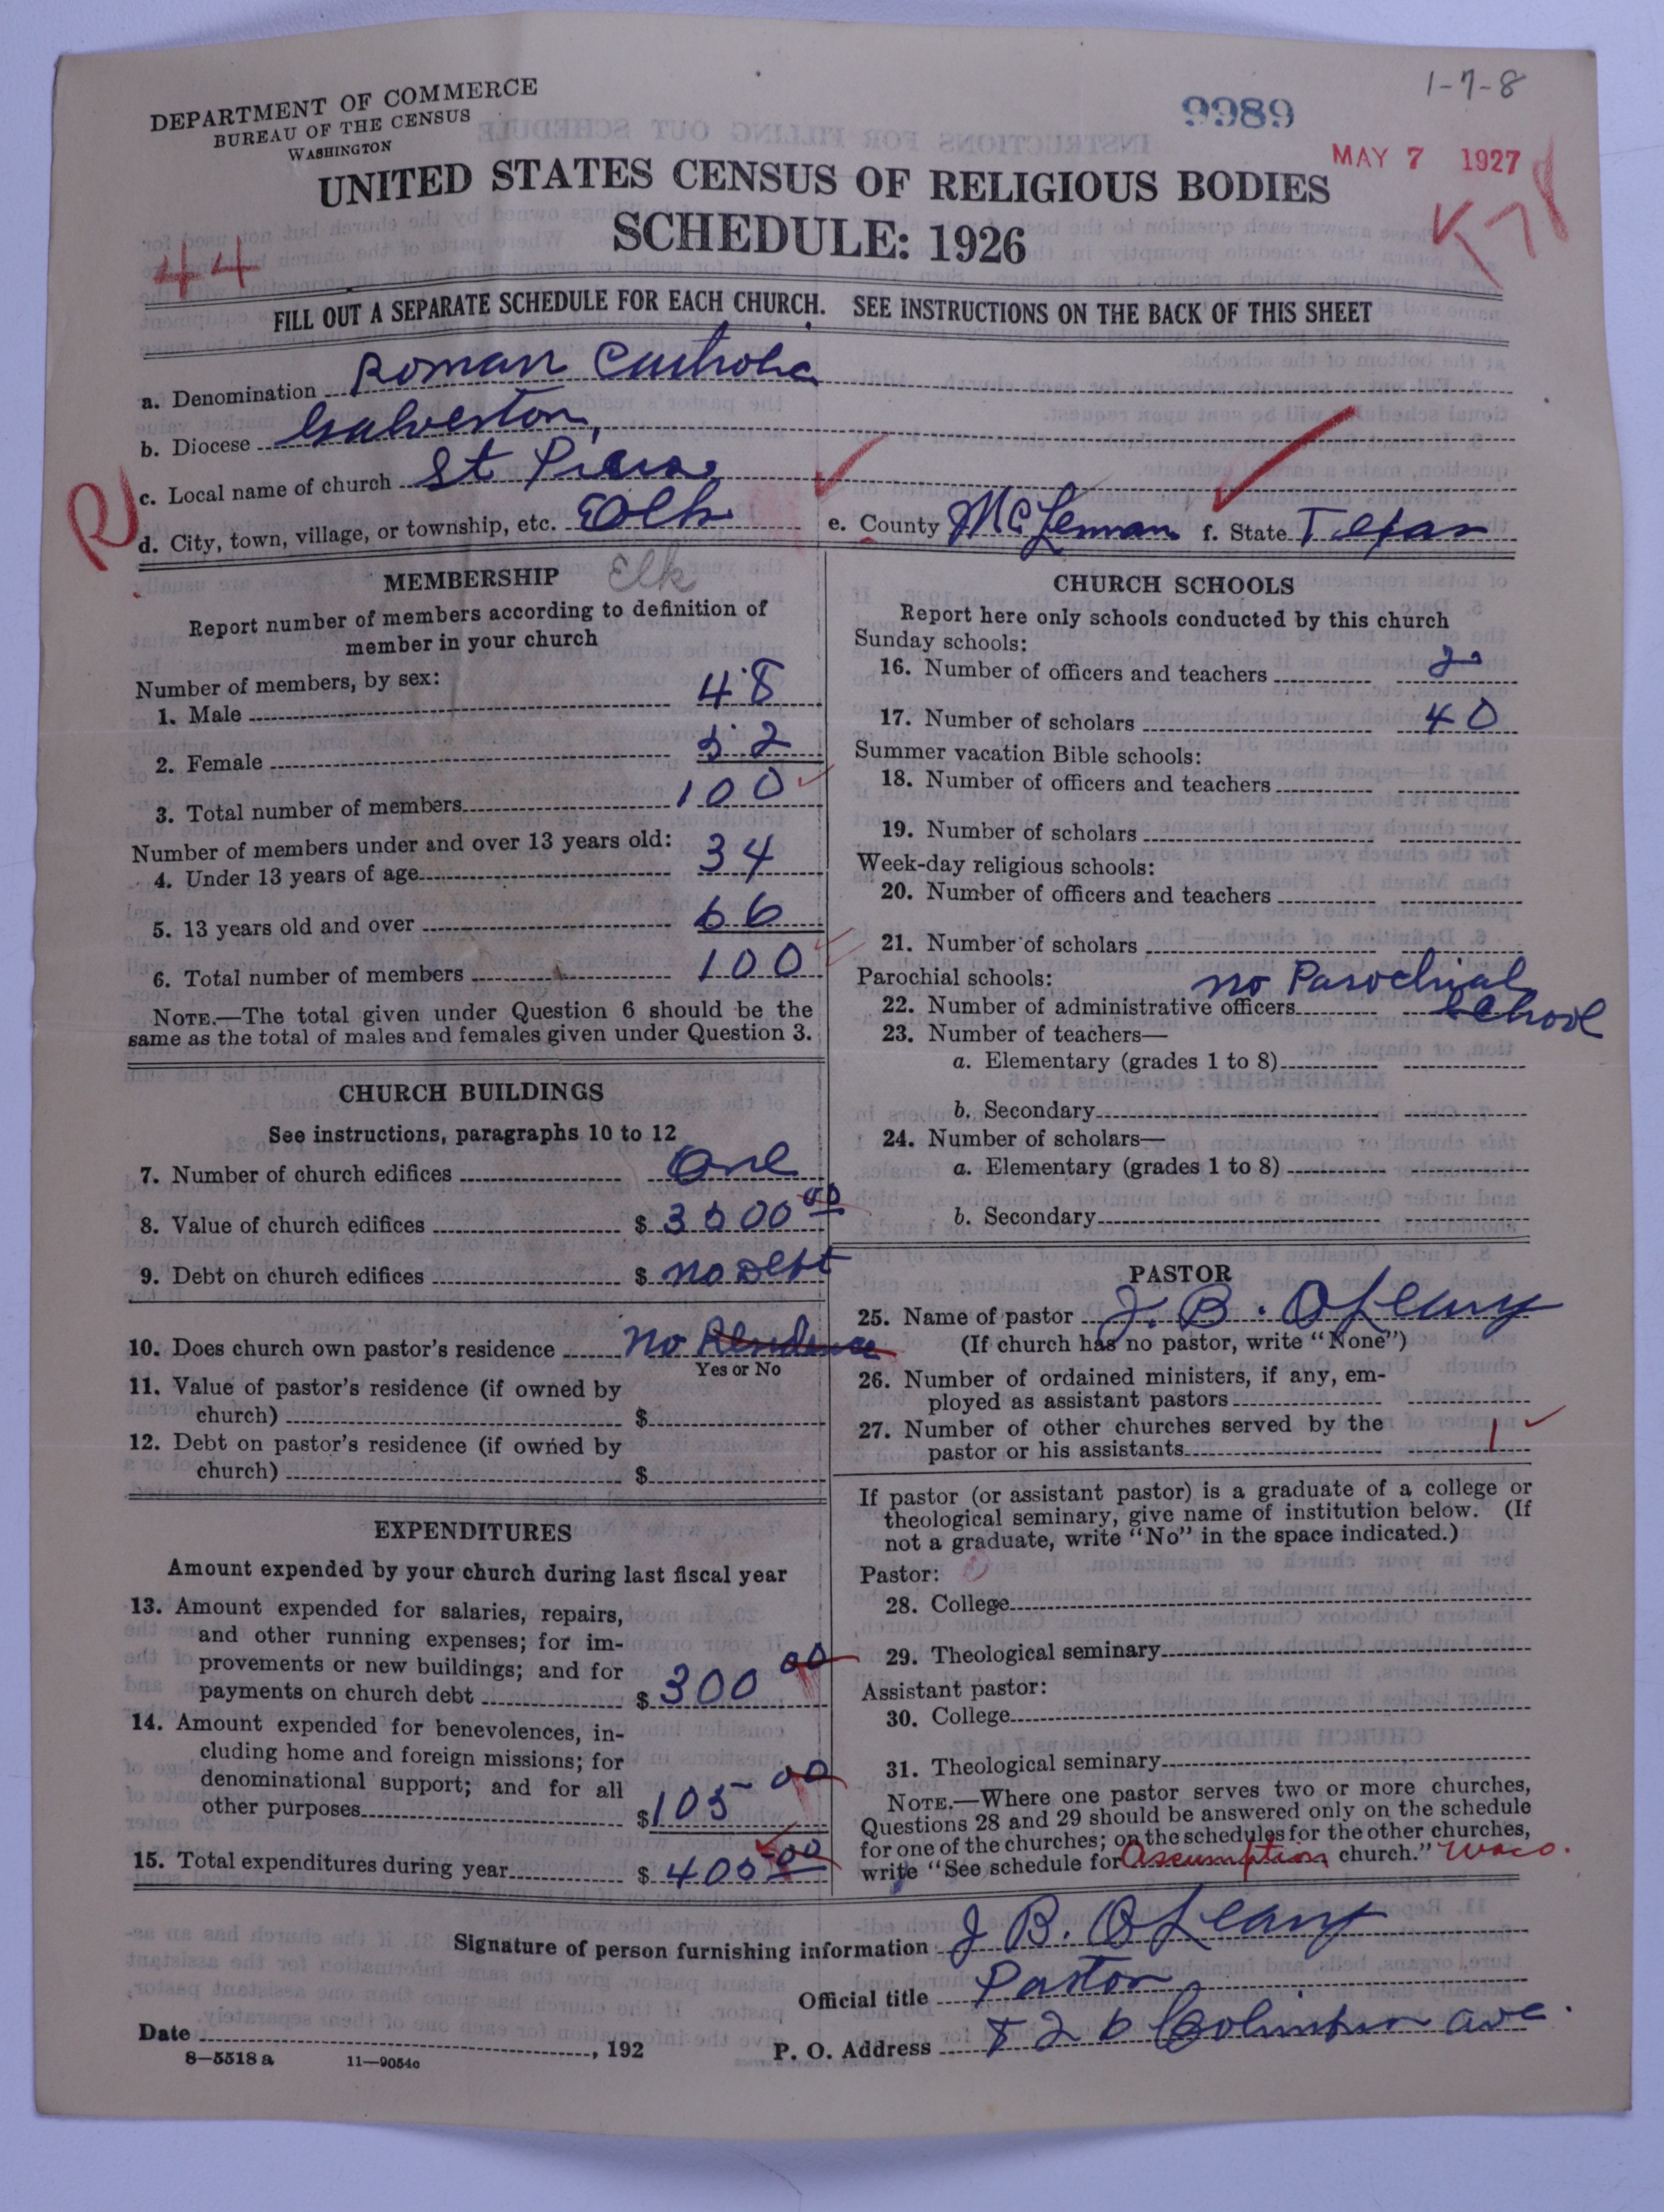 DEPARTMENT OF COMMERCE
BUREAU OF THE CENSUS
WASHINGTON
9989
1-7-8
MAY 7 1927
UNITED STATES CENSUS OF RELIGIOUS BODIES
SCHEDULE: 1926
44
FILL OUT A SEPARATE SCHEDULE FOR EACH CHURCH. SEE INSTRUCTIONS ON THE BACK OF THIS SHEET
a. Denomination Roman Catholic
b. Diocese Galveston,
c. Local name of church St
R
d. City, town, village, or township, etc. Elk e. County McLennan f. State Texas
Elk
MEMBERSHIP
Report number of members according to definition of
member in your church
Number of members, by sex:
1. Male 48
2. Female 52
3. Total number of members 100
Number of members under and over 13 years old:
4. Under 13 years of age 34
5. 13 years old and over 66
6. Total number of members 100
NOTE.—The total given under Question 6 should be the
same as the total of males and females given under Question 3.
CHURCH BUILDINGS
See instructions, paragraphs 10 to 12
7. Number of church edifices One
8. Value of church edifices $ 3500 00
9. Debt on church edifices $ no Debt
10. Does church own pastor's residence no Residence
Yes or No
11. Value of pastor's residence (if owned by
church) $
12. Debt on pastor's residence (if owned by
church) $
EXPENDITURES
Amount expended by your church during last fiscal year
13. Amount expended for salaries, repairs,
and other running expenses; for im-
provements or new buildings; and for
payments on church debt $ 300 00
14. Amount expended for benevolences, in-
cluding home and foreign missions; for
denominational support; and for all
other purposes $ 105 00
15. Total expenditures during year $ 405 00
CHURCH SCHOOLS
Report here only schools conducted by this church
Sunday schools:
16. Number of officers and teachers 2
17. Number of scholars 40
Summer vacation Bible schools:
18. Number of officers and teachers
19. Number of scholars
Week-day religious schools:
20. Number of officers and teachers
21. Number of scholars
Parochial schools: no Parochial
22. Number of administrative officers School
23. Number of teachers—
a. Elementary (grades 1 to 8)
b. Secondary
24. Number of scholars—
a. Elementary (grades 1 to 8)
b. Secondary
PASTOR
25. Name of pastor J. B. O'Leary
(If church has no pastor, write "None")
26. Number of ordained ministers, if any, em-
ployed as assistant pastors
27. Number of other churches served by the
pastor or his assistants 1
If pastor (or assistant pastor) is a graduate of a college or
theological seminary, give name of institution below. (If
not a graduate, write "No" in the space indicated.)
Pastor:
28. College
29. Theological seminary
Assistant pastor:
30. College
31. Theological seminary
NOTE.—Where one pastor serves two or more churches,
Questions 28 and 29 should be answered only on the schedule
for one of the churches; on the schedules for the other churches,
write "See schedule for Assumption church." Waco.
Signature of person furnishing information J B. O'Leary
Official title Pastor
Date , 192
P. O. Address 826 Columbus Ave.
8—5518 a 11—9054c